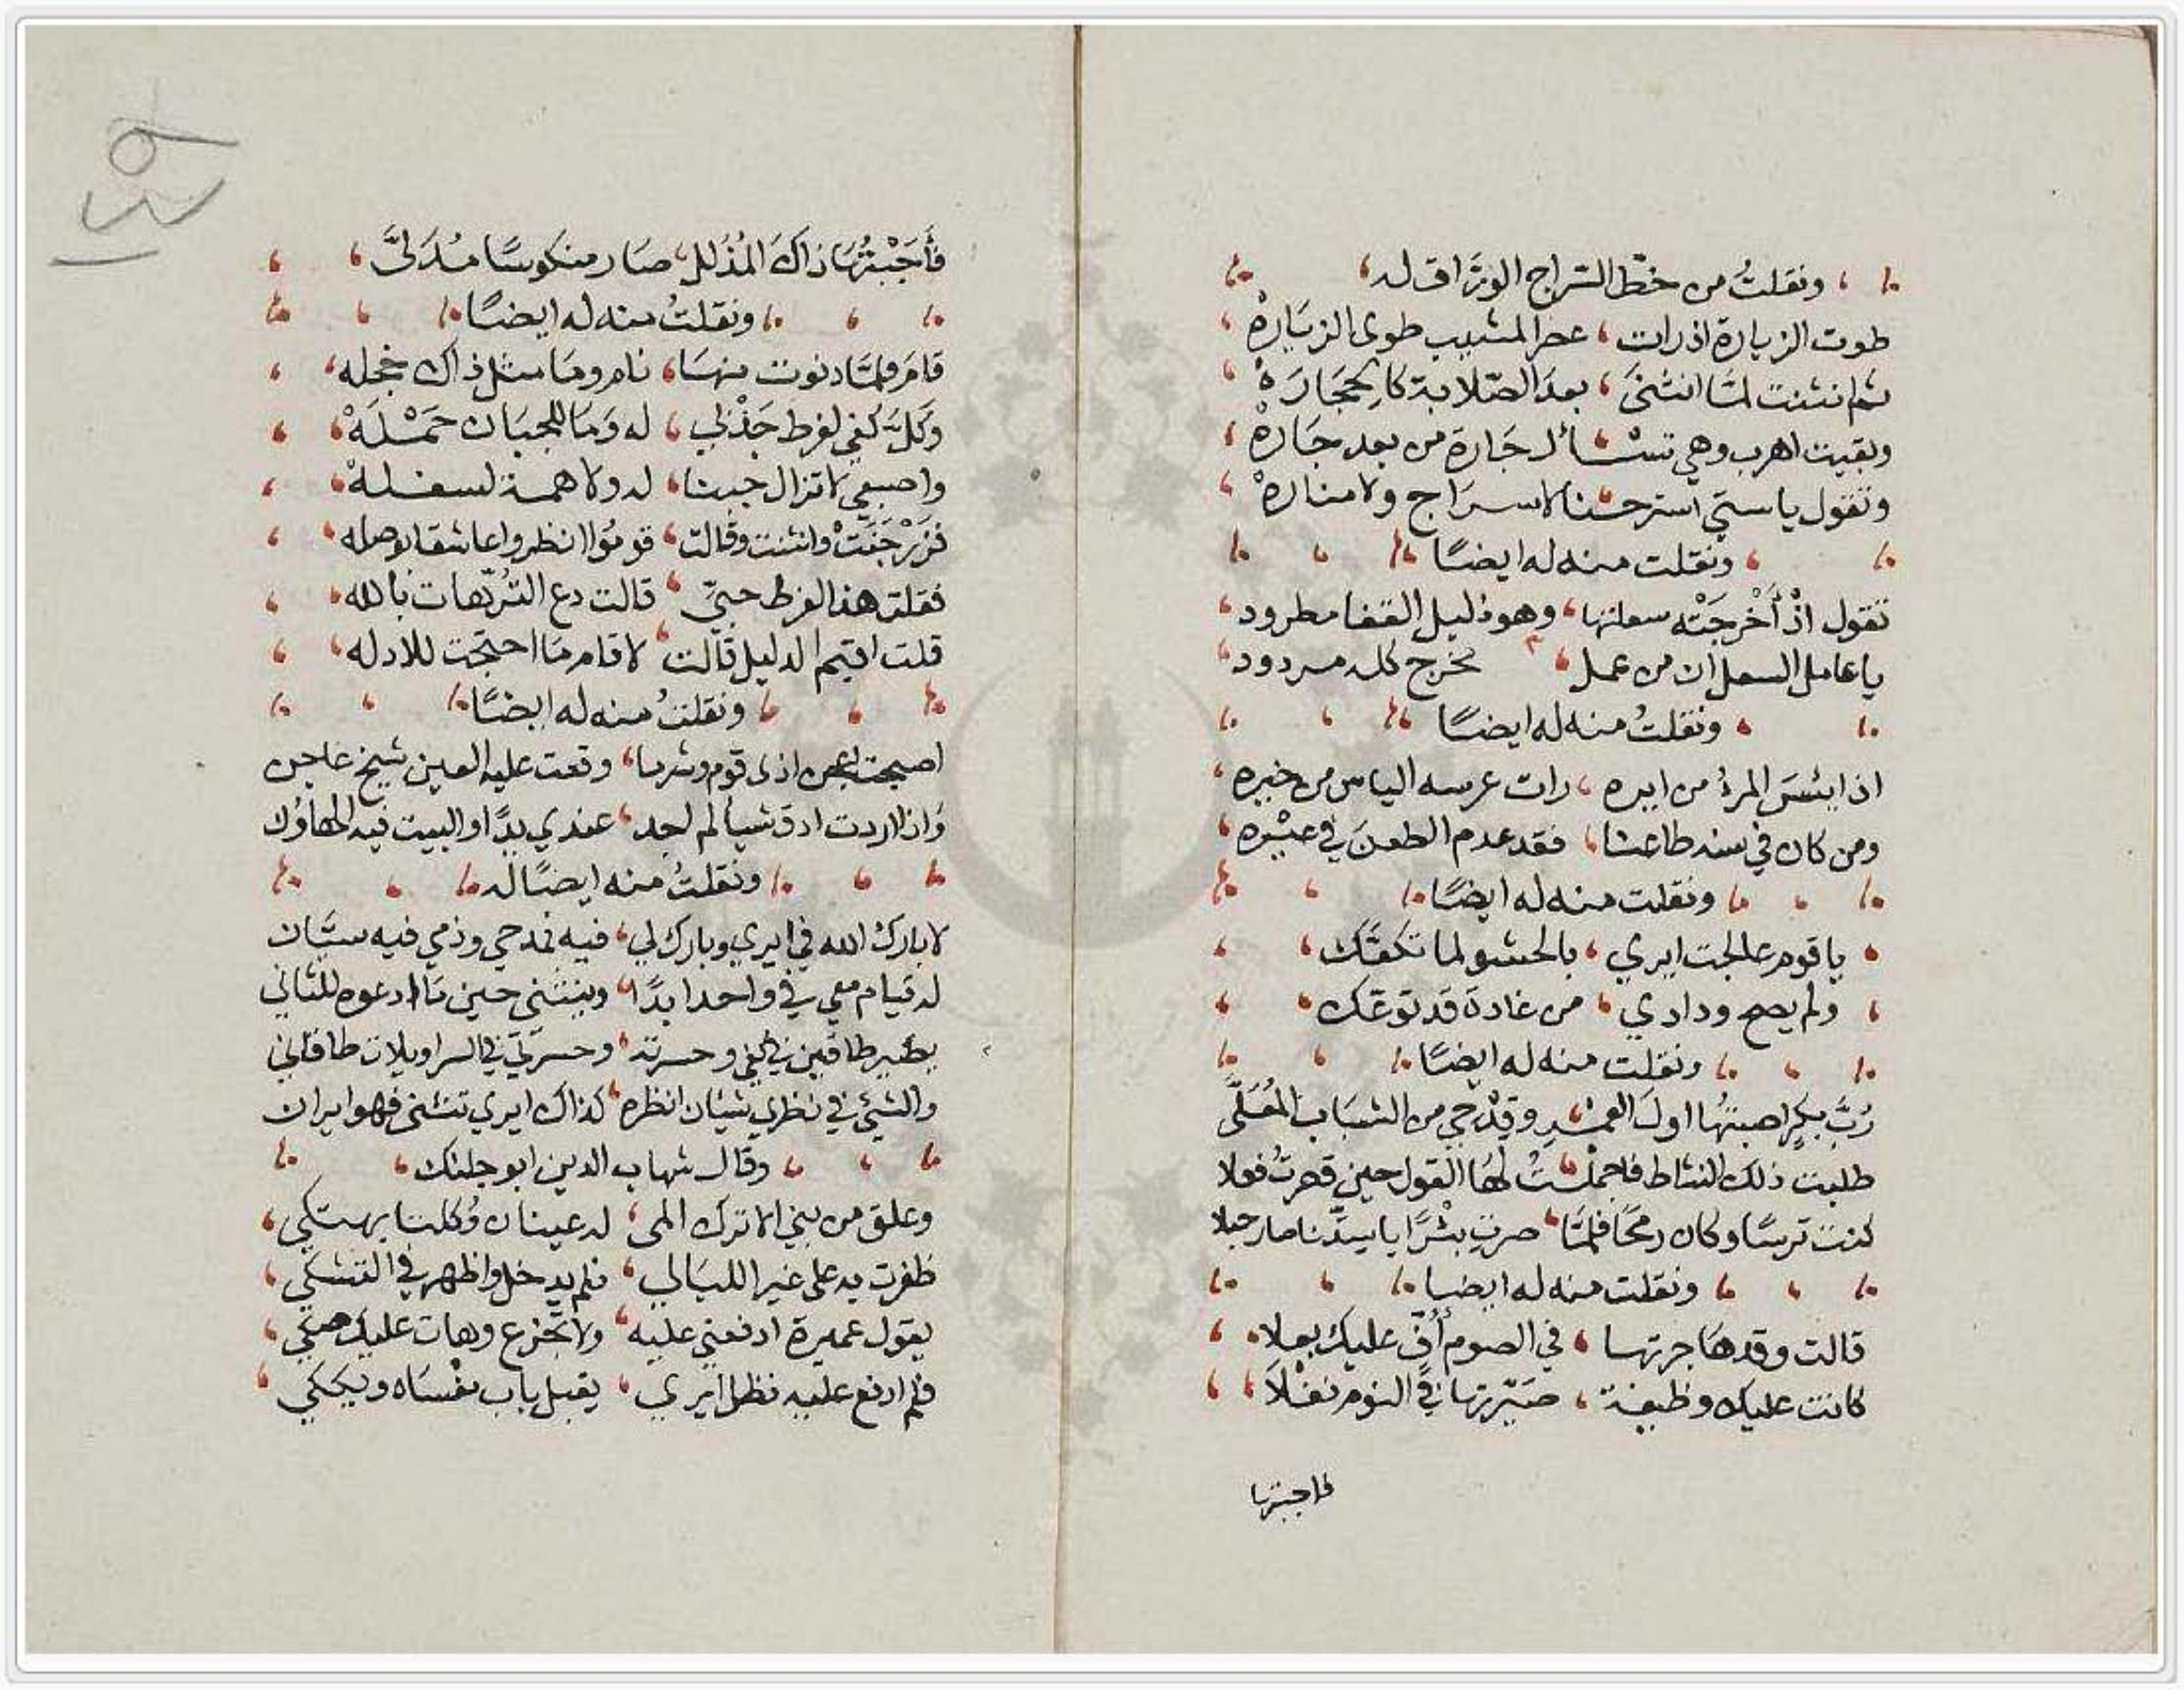 ونقلتُ من خطّ السّراج الورّاق له
طوت الزيارة اذ رات عصر المشيب طوى الزيَارهْ
ثم انثنت لمّا انثنىَ بعدَ الصّلابة كالحجَارَهْ
وبقيت اهرب وهي تسْأل جَارة من بعد جَارهْ
وتقول يا ستي استرحنا لا سرَاج ولا منارهْ
ونقلت منه له ايضًا
تقول اذْ أَخْرجَتْه سعلتها وهو ذليل القفا مطرود
يا عامل السعل ان من عمل تخرج كله مردود
ونقلتُ منه له ايضًا
اذا ايئسَ المرءُ من ايره رات عرسه الياس من خيره
ومن كان في سنه طاعنا فقد عدم الطعنَ في عيْره
ونقلت منه له ايضًا
يا قوم عالجت ايري بالحشو لما تكعّك
ولم يصح ودادي من غادة قد توعّك
ونقلت منه له ايضًا
رُبَّ بكرٍ اصبتهُا اولَ العمْر وقِدْحي من الشبَاب المُعَلَّى
طلبت ذلك النشاط فاجملْتُ لهَا القول حين قصرتُ فعلا
كنتِ ترسًا وكان رمحًا فلمّا صرتِ بئْرًا يا ستّنا صار حبلا
ونقلت منه له ايضا
قالت وقد هَاجرتها في الصوم أُفّ عليك بعلا
كانت عليك وظيفة صَيّرتها في النوم نفْلاَ
فاجبتها
فأَجَبْتُهَا ذاكَ المُذَلل صَار منكوسًا مُدَلىَّ
ونقلتُ منه له ايضًا
قامَ فلمّا دنوت منهَا نام ومَا مثل ذاك خجله
وَكَلَّ كفي لفرط جَذْبي له وَمَا للجبَان حَمْلَهْ
واصبعي لا تزال جيثا له ولا همة لسفلهْ
فزَرْجَنَتْ وانثنت وقالت قومُوا انظروا عاشقا بوصله
فقلت هذا لفرط حبيّ قالت دع التُرّهات بالله
قلت اقيم الدليل قالت لا قام مَا احتجت للادله
ونقلتُ منه له ايضًا
اصبحت اعجن اذى قوم وشربا وقعت عليه العين شيخ عاجن
وَاذا اردت ادق شيا لم اجد عندي يدًا والبيت فيه الهاوُن
ونقلتُ منه ايضًا له
لا بارك الله في ايري وبارك لي فيه فمدحي وذمي فيه سيّان
له قيام معي في واحد ابدًا وينثني حين مَا ادعوه للثاني
يصير طاقين في كفي وحسرته وحسرتي في السراويلات طاقاني
والشيء في نظري شيئان انظره كذاك ايري تثنى فهو ايران
وقال شهاب الدين ابو جلنك
وعلق من بني الاتراك المى له عينان وُكلتا بهتكي
ظفرت به على غير الليَالي فلم يدخل واظهر في التشكي
يقول عميرة ادفعني عليه ولا تجزع وهات عليك صكي
فلم ادفع عليه فظل ايري يقبل باب مفْسَاه ويَبكي